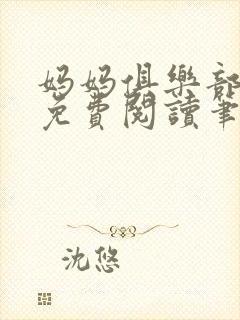 妈妈俱樂部
免費閱讀筆
沈悠